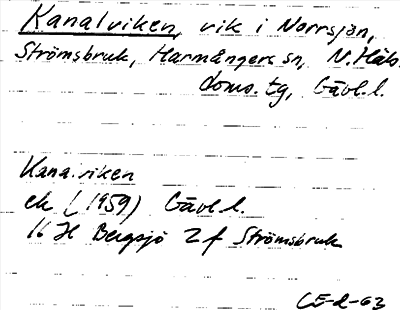 Kanalviken, vik i Norrsjön,
Strömsbruk, Harmångers sn, N. Häls.
doms. tg, Gävl. l.
Kanalviken
ek (1959) Gävl. l.
16 H Bergsjö 2 f Strömsbruk
CE-2-63